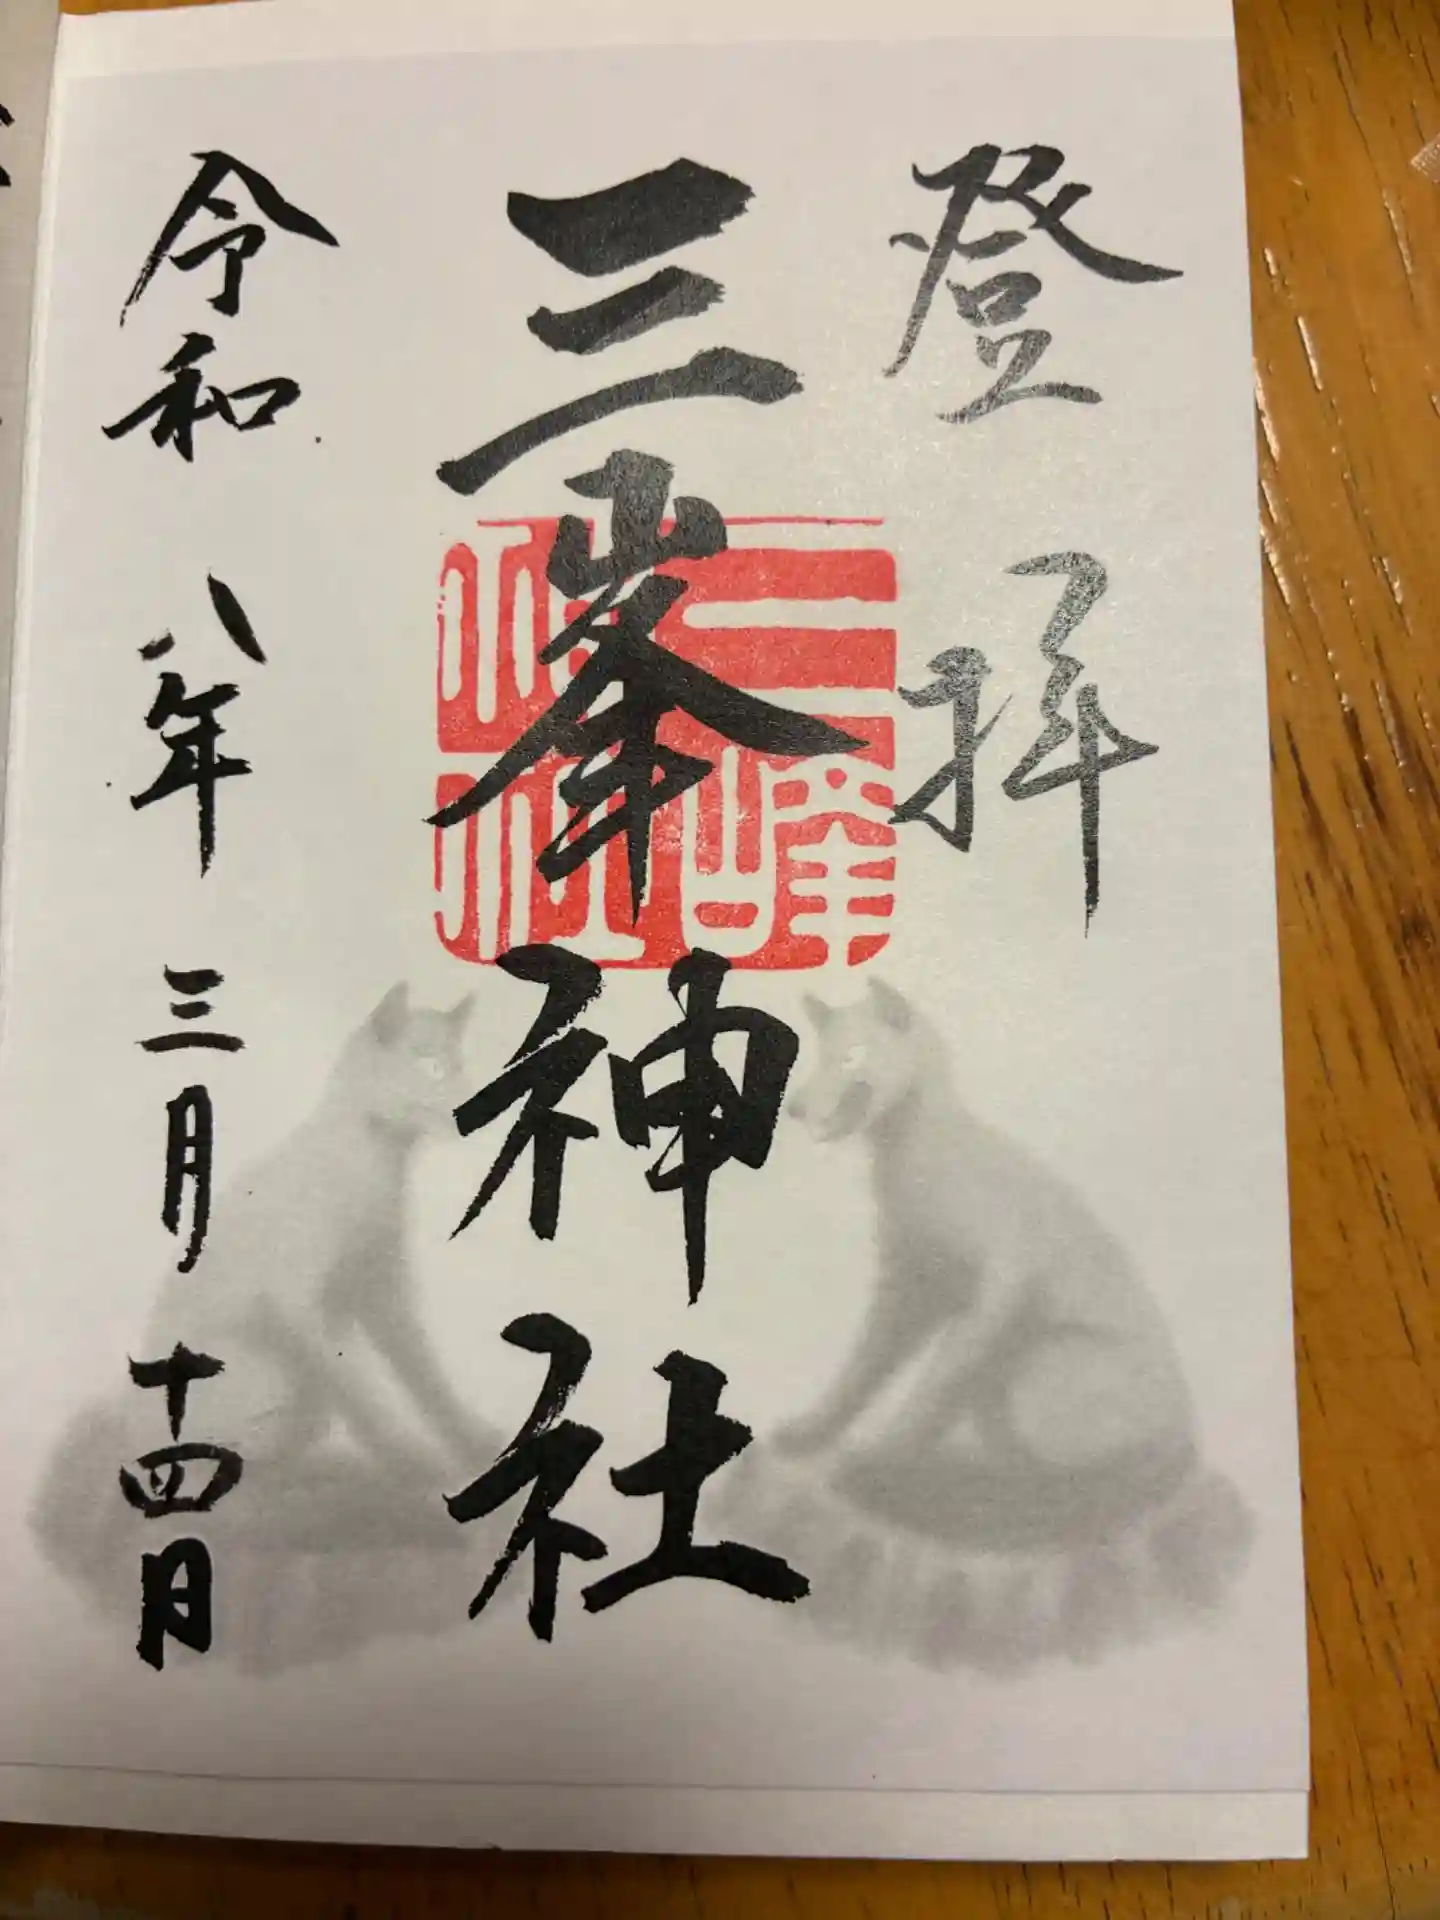 登拝
三峯神社
三峰神社
令和八年三月十四日